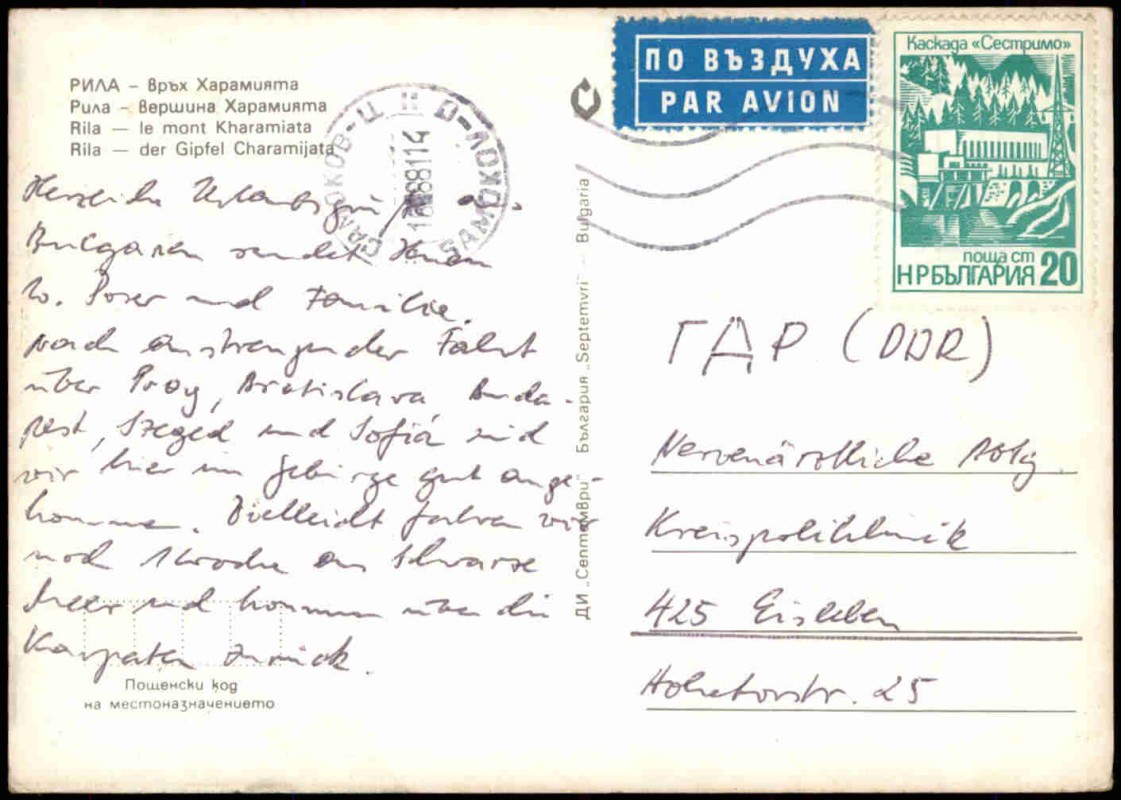 РИЛА – Връх Харамията
Рила – Вершина Харамията
Rila — le mont Kharamiata
Rila — der Gipfel Charamijata
Herzliche Urlaubsgrüße aus
Bulgarien sendet Ihnen
und Familie.
Nach anstrengender Fahrt
über Prag, Bratislava Buda-
pest, Szeged und Sofia sind
wir hier im Gebirge gut ange-
kommen. Vielleicht fahren wir
noch 1 Woche ans Schwarze
Meer und kommen über die
Karpaten zurück.
Пощенски код
на местоназначението
ДИ „Септември" България „Septemvri" — Bulgaria
САМОКОВ-Ц
SAMOKOV
ПО ВЪЗДУХА
PAR AVION
Каскада «Сестримо»
поща ст
НР БЪЛГАРИЯ 20
ГДР (DDR)
Nervenärztliche Abtg.
Kreispoliklinik
425 Eisleben
Hohetorstr. 25